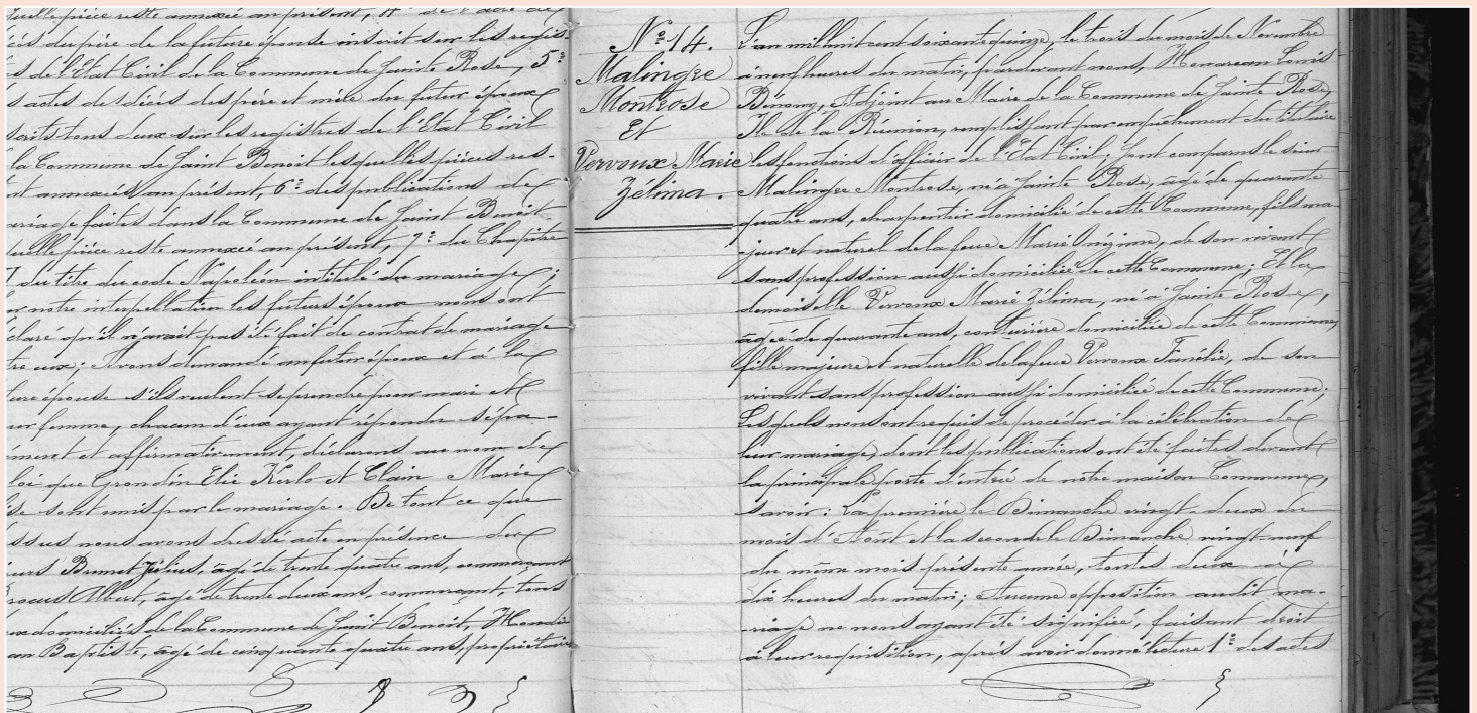 laquelle pièce reste annexée au présent, 4º de l'acte de
décès du père de la future épouse inscrit sur les regis
s de l'Etat Civil de la Commune de Sainte Rose, 5º
s actes de décès des père et mère du futur époux
scrits tous deux sur les registres de l'Etat Civil
la Commune de Saint Benoit lesquelles pièces res-
nt annexées au présent, 6º des publications de
ariage faites dans la Commune de Saint Benoit
quelle pièce reste annexée au présent, 7º du Chapitre
du titre du code Napoléon intitulé du mariage;
ur notre interpellation les futurs époux nous ont
claré qu'il n'avait pas été fait de contrat de mariage
tre eux; Avons demandé au futur époux et à la
ture épouse s'ils veulent se prendre pour mari et
ur femme, chacun d'eux ayant répondu sépa-
ément et affirmativement, déclarons au nom de
loi que Grondin Elie Kerlo et Clain Marie
se sont unis par le mariage. De tout ce que
ssus nous avons dressé acte en présence des
ieurs Brunet Julius, âgé de trente quatre ans, commerçant
Brocus Albert, âgé de trente deux ans, commerçant, tous
ux domiciliés de la Commune de Saint Benoit,
an Baptiste, âgé de cinquante quatre ans, propriétaire
Nº 14.
Malingre
Montrose
Et
Vervoux Marie
Zelima.
L'an mil huit cent soixante quinze, le trois du mois de Novembre
à neuf heures du matin, pardevant nous, Denis
Adjoint au Maire de la Commune de Sainte Rose,
Ile de la Réunion, remplissant par empêchement du titulaire
les fonctions d'officier de l'Etat Civil; Sont comparus le sieur
Malingre Montrose, né à Sainte Rose, âgé de quarante
quatre ans, charpentier domicilié de cette Commune, fils ma-
jeur et naturel de la feue Marie Onézime, de son vivant
sans profession aussi domiciliée de cette Commune; Et la
demoiselle Vervoux Marie Zélima, né à Sainte Rose,
âgée de quarante ans, couturière domiciliée de cette Commune,
fille majeure et naturelle de la feue Vervoux Fanélie, de son
vivant sans profession aussi domiciliée de cette Commune;
Lesquels nous ont requis de procéder à la célébration de
leur mariage, dont les publications ont été faites devant
la principale porte d'entrée de notre maison Commune,
savoir: La première le Dimanche vingt-deux du
mois d'Août et la seconde le Dimanche vingt-neuf
du même mois présente année, toutes deux à
dix heures du matin; Aucune opposition audit ma-
riage ne nous ayant été signifiée, faisant droit
à leur requisition, après avoir donné lecture 1º des actes